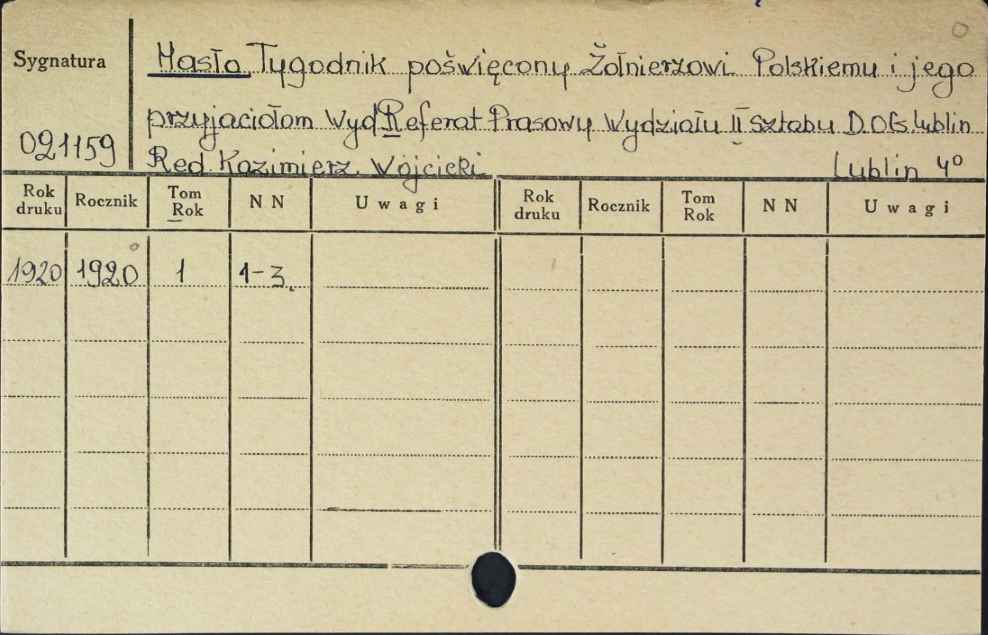 Sygnatura
Hasło Tygodnik poświęcony Żołnierzowi Polskiemu i jego
przyjaciołom Wyd Referat Prasowy Wydziału II Sztabu D.O.G. Lublin
021159
Red. Kazimierz Wójcicki Lublin 4°
Rok druku Rocznik Tom Rok NN Uwagi Rok druku Rocznik Tom Rok NN Uwagi
1920 1920 1 1-3.